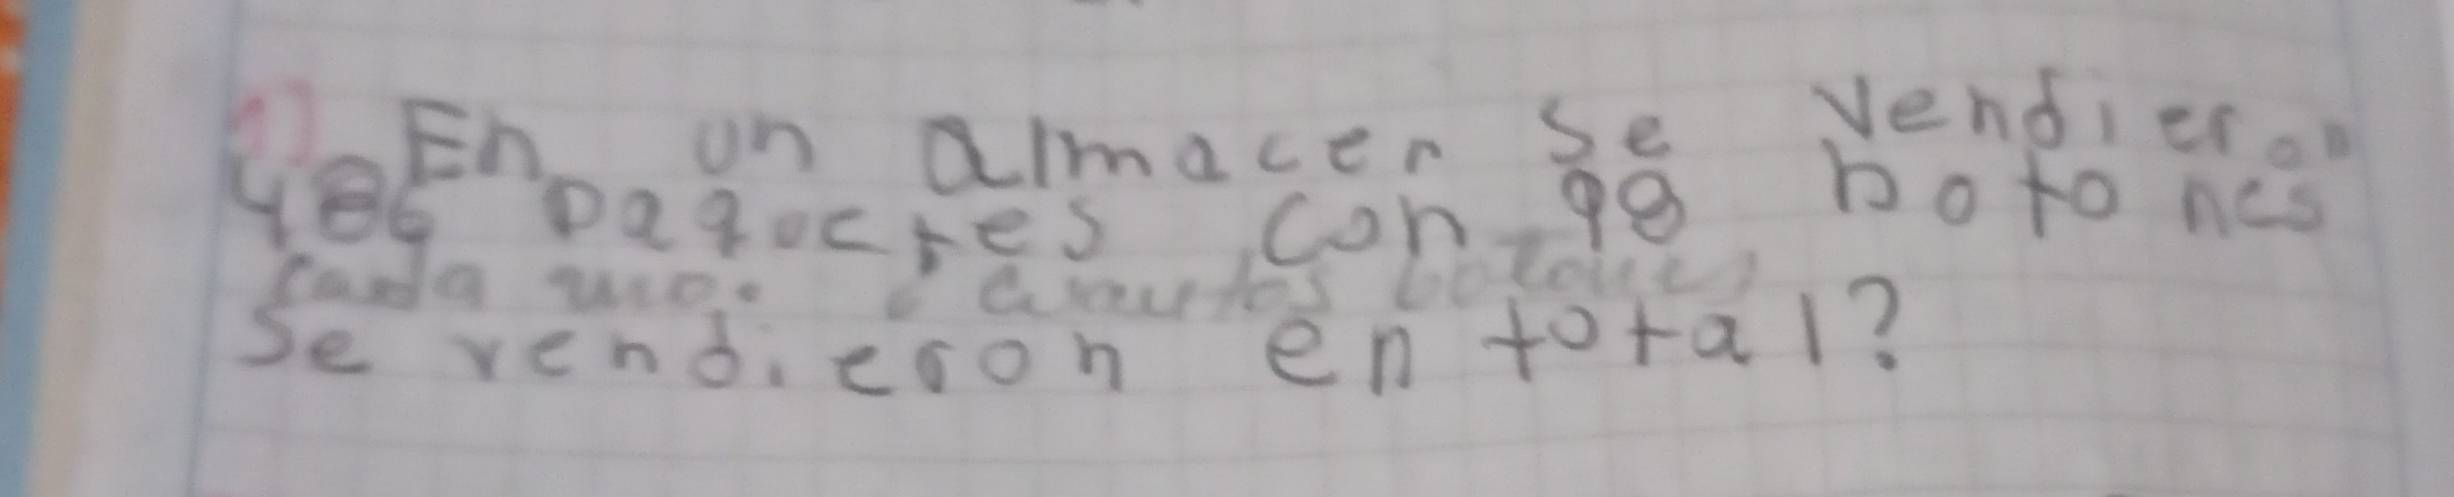 1) En un almacen se vendieron
486 paquetes con 98 botones
cada uno. ¿Cuantos botones
se vendieron en total?